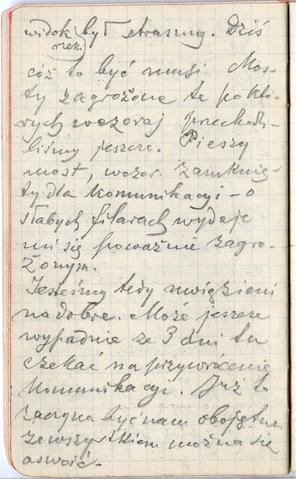 widok rzeki był straszny. Dziś
cóż to być musi Mos-
ty zagrożone te po któ-
rych wczoraj przechodzi-
liśmy jeszcze. Pieszy
most, wczor. zamknię-
ty dla komunikacyi – o
słabych filarach wydaje
mi się poważnie zagro-
żonym.
Jesteśmy tedy uwięzieni
na dobre. Może jeszcze
wypadnie ze 3 dni tu
czekać na przywrócenie
komunikacyi. Już to
zaczyna być nam obojętne
ze wszystkiem można się
oswoić.